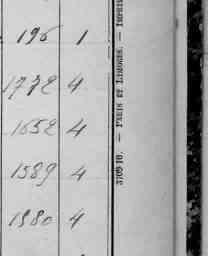 196 1
1772 4
1652 4
1589 4
1980 4
37091-10. — PARIS ET LIMOGES. — IMPRIM